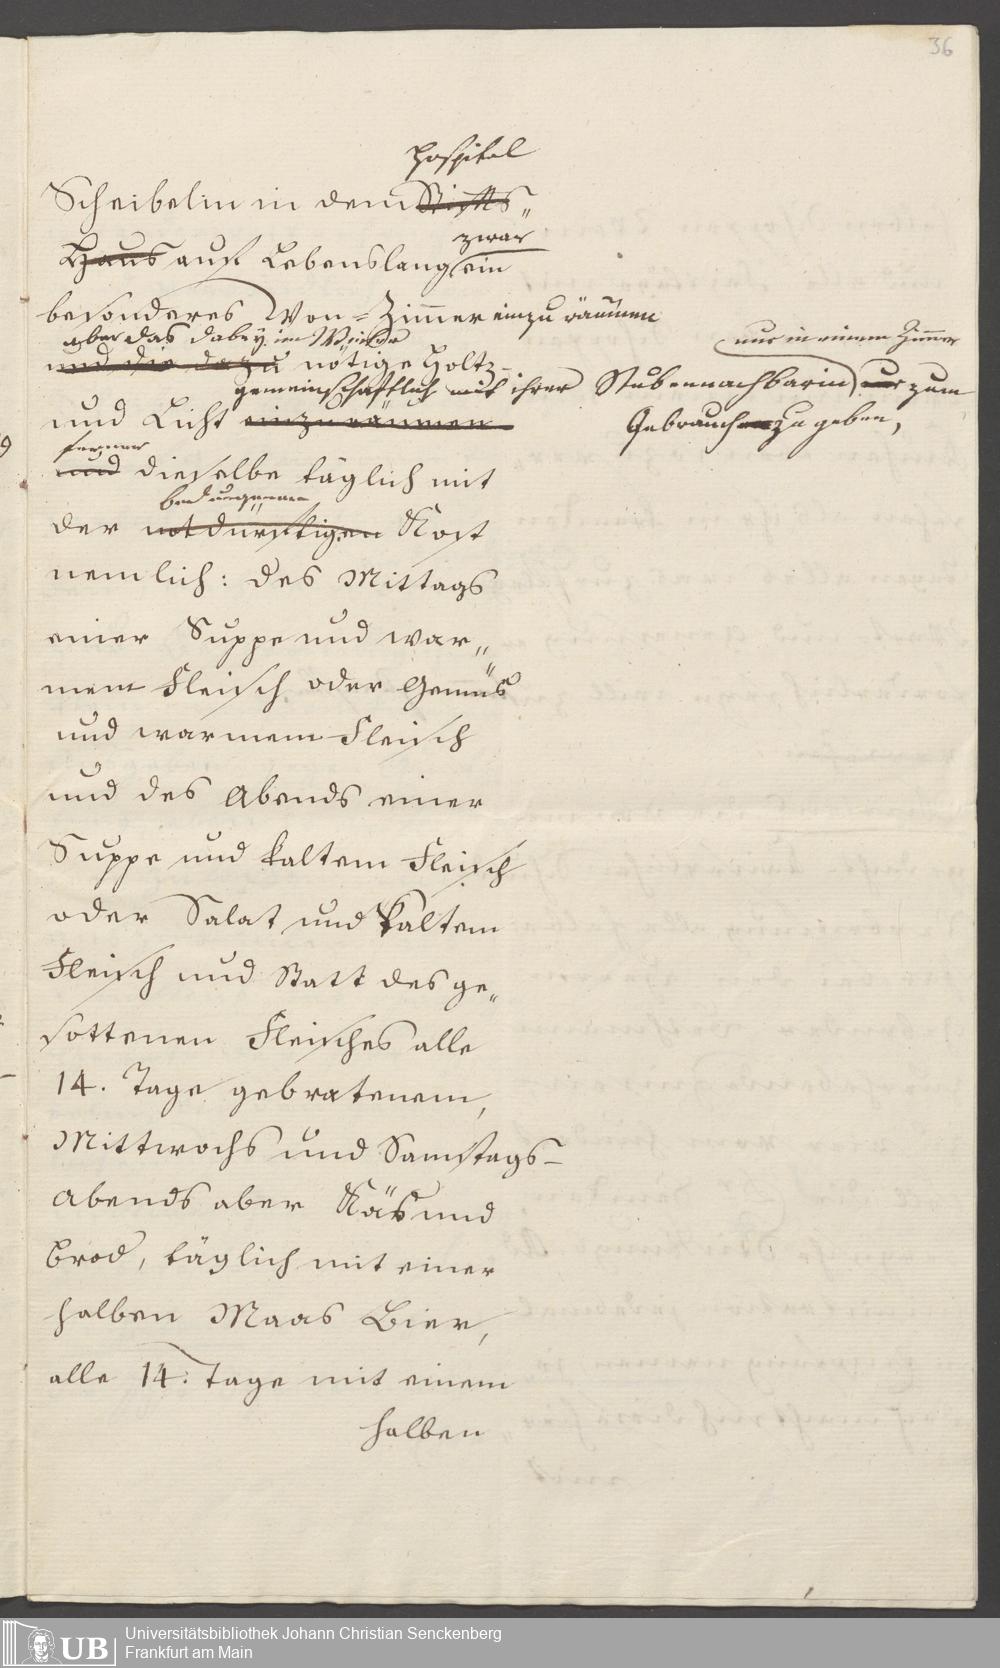 36
Hospital
Scheibelin in dem Stiffts„
zwar
Haus auf Lebenslang ein
besonderes Won-Zimmer einzuräumen
aber das dabey im Winter
nur in einem Zimmer
und die dazu nötige Holtz-
gemeinschaftlich mit ihrer Stubennachbarin nur zum
und Licht einzuräumen
Gebrauch zu geben,
ferner
und dieselbe täglich mit
bedungenen
der notdürftigen Kost
nemlich: des Mittags
einer Suppe und war„
mem Fleisch oder Gemüs
und warmem Fleisch
und des Abends einer
Suppe und kaltem Fleisch
oder Salat und kaltem
Fleisch und Statt des ge„
sottenen Fleisches alle
14. Tage gebratenem,
Mittwochs und Samstags-
Abends aber Käs und
Brod, täglich mit einer
halben Maas Bier,
alle 14. Tage mit einem
halben
UB
Universitätsbibliothek Johann Christian Senckenberg
Frankfurt am Main